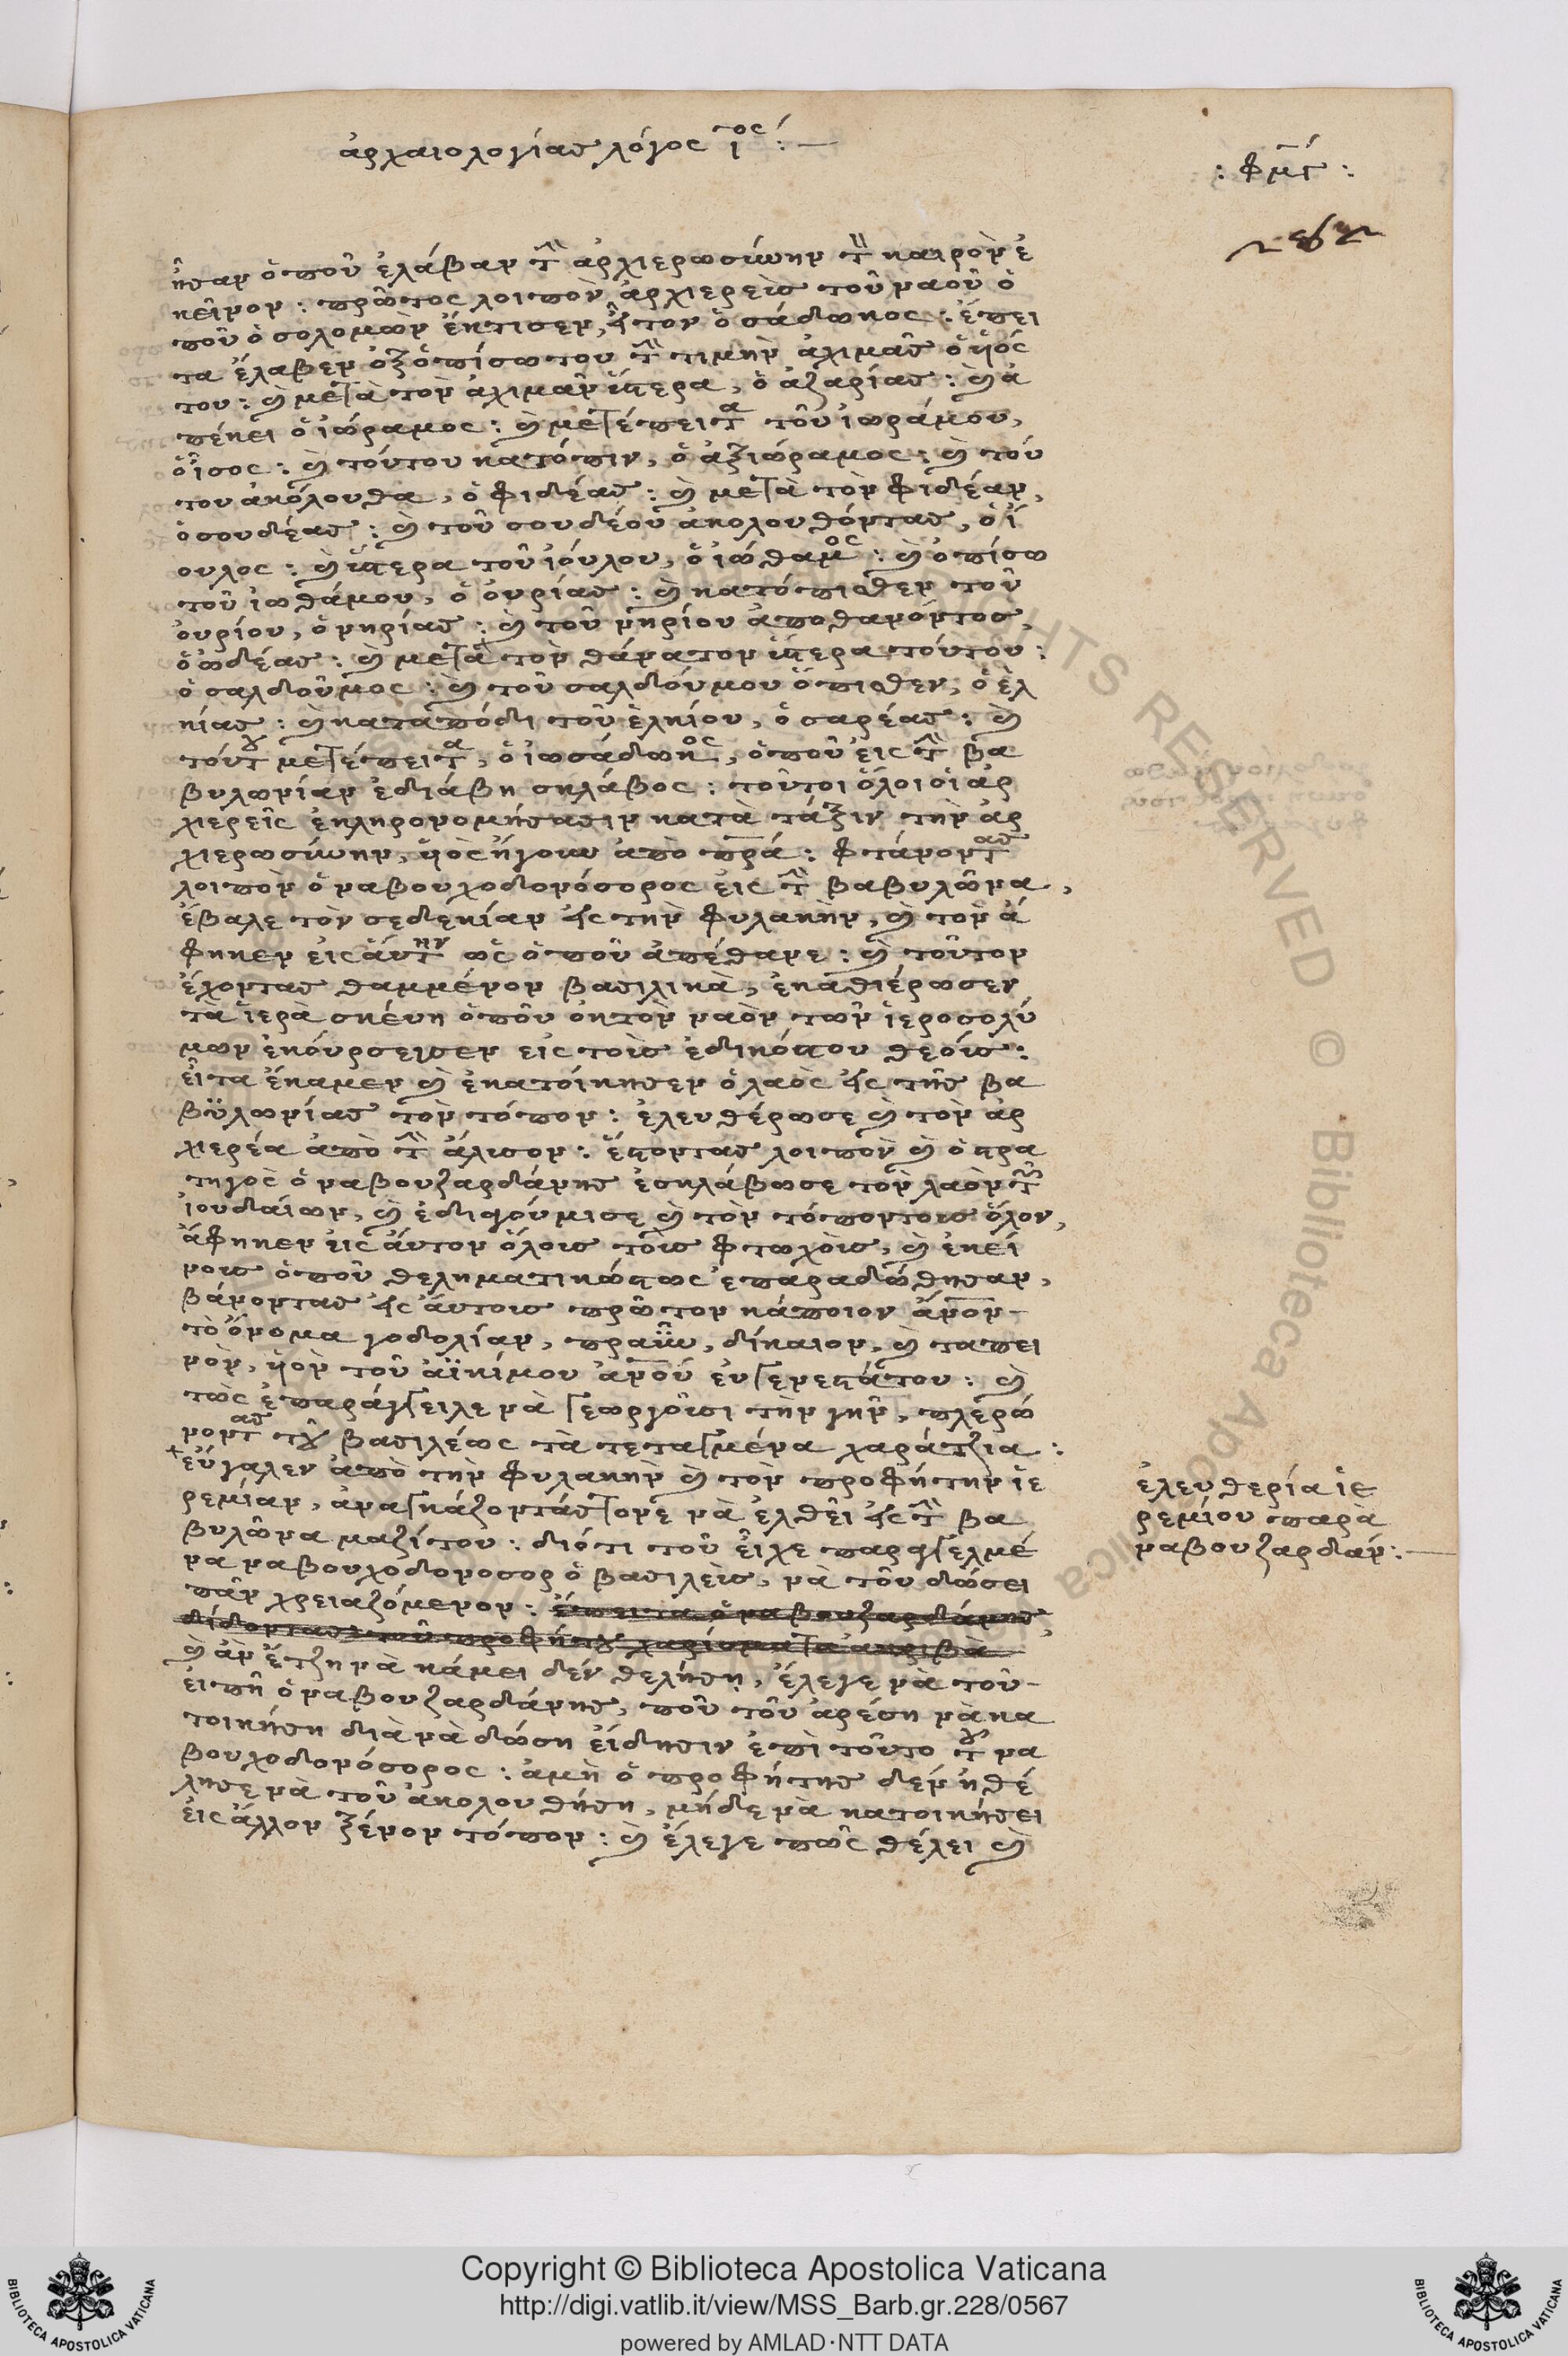 ἀρχαιολογίας λόγος ιος :—
: φμγ :
ἦσαν ὁποῦ ἐλάβαν τὴν ἀρχιερωσύνην τὸν καιρὸν ἐ
κεῖνον : πρῶτος λοιπὸν ἀρχιερεὺς τοῦ ναοῦ ὁ
ποῦ ὁ σολομὼν ἔκτισεν, ἦτον ὁ σάδωκος : ἔπει
τα ἔλαβεν ὀξοπίσω του τὴν τιμὴν ἀχιμᾶς ὁ ὑιός
του : καὶ μετὰ τὸν ἀχιμᾶν ὕστερα, ὁ ἀζαρίας : καὶ ἀ
πέκει ὁ ἰώραμος : καὶ μετέπειτα τοῦ ἰωράμου,
ὁ ἶσος : καὶ τούτου κατόπιν, ὁ ἀξιώραμος : καὶ τού
του ἀκόλουθα, ὁ φιδέας : καὶ μετὰ τὸν φιδέαν,
ὁ σουδέας : καὶ τοῦ σουδέου ἀκολουθόντας, ὁ ἰ
ουλος : καὶ ὕστερα τοῦ ἰούλου, ὁ ἰώθαμος : καὶ ὀπίσω
τοῦ ἰωθάμου, ὁ ὀυρίας : καὶ κατόπισθεν τοῦ
ὀυρίου, ὁ νηρίας : καὶ τοῦ νηρίου ἀποθανόντος,
ὁ ὠδέας : καὶ μετὰ τὸν θάνατον ὕστερα τούτου :
ὁ σαλδοῦμος : καὶ τοῦ σαλδούμου ὄπισθεν, ὁ ἐλ
κίας : καὶ καταπόδι τοῦ ἐλκίου, ὁ σαρέας : καὶ
τούτου μετέπειτα, ὁ ἰωσάδωκος, ὁποῦ εἰς τὴν βα
βυλωνίαν ἐδιάβη σκλάβος : τοῦτοι ὅλοι οἱ ἀρ
χιερεῖς ἐκληρονομήσασιν κατὰ τάξιν τὴν ἀρ
χιερωσύνην, ὑιὸς ἤγουν ἀπὸ πρά : φτάνοντας
λοιπὸν ὁ ναβουχοδονόσορος εἰς τὴν βαβυλῶνα,
ἔβαλε τὸν σεδεκίαν εἰς τὴν φυλακὴν, καὶ τὸν ἄ
φηκεν εἰς ἀυτὴν ὡς ὁποῦ ἀπέθανε : καὶ τοῦτον
ἔχοντας θαμμένον βασιλικὰ, ἐκαθιέρωσεν
τὰ ἱερὰ σκέυη ὁποῦ ὀκτὸν ναὸν τῶν ἱεροσολύ
μων ἐκούρσευσεν εἰς τοὺς ἐδικούστου θεούς :
εἶτα ἔκαμεν καὶ ἐκατοίκησεν ὁ λαὸς εἰς τῆς βα
βυλωνίας τὸν τόπον : ἐλευθέρωσε καὶ τὸν ἀρ
χιερέα ἀπὸ τὴν ἅλυσον : ἔστοντας λοιπὸν καὶ ὁ στρα
τηγὸς ὁ ναβουζαρδάνης ἐσκλάβωσε τὸν λαὸν τῶν
ἰουδαίων, καὶ ἐδιαγούμισε καὶ τὸν τόποντους ὅλον,
ἄφηκεν εἰς ἀυτὸν ὅλους τοὺς φτωχοὺς, καὶ ἐκεί
νους ὁποῦ θεληματικώστως ἐπαραδώθησαν,
βάνοντας εἰς ἀυτοὺς πρῶτον κάποιον ἄνον-
τὸ ὄνομα γοδολίαν, πραῢν, δίκαιον, καὶ ταπει
νὸν, ὑιὸν τοῦ ἀϊκίμου ἀνού ἐυγενεστάτου : καὶ
τῶς ἐπαράγγειλε νὰ γεωργοῦσι τὴν γῆν, πλέρώ
νοντας τοῦ βασιλέως τὰ τεταγμένα χαράτζια :
ἐύγαλεν ἀπὸ τὴν φυλακὴν καὶ τὸν προφήτην ἱε
ρεμίαν, ἀναγκάζοντάς τονε νὰ ἐλθεῖ εἰς τὴν βα
βυλῶνα μαζίτου : διότι τοῦ εἶχε παραγγελμέ
να ναβουχοδονοσορ ὁ βασιλεὺς, νὰ τοῦ δώσει
πᾶν χρειαζόμενον : ἔπειτα ὁ ναβουζαρδάνης
δίδοντας τοῦ προφήτου χαρίσματα ἀκριβὰ
καὶ ἂν ἔτζη νὰ κάμει δέν θελήση, ἔλεγε νὰ τοῦ-
εἰπῆ ὁ ναβουζαρδάνης, ποῦ τοῦ ἀρέση νὰ κα
τοικήση διὰ νὰ δώση εἴδησιν ἐπὶ τοῦτο τοῦ να
βουχοδονόσορος : ἀμὴ ὁ προφήτης δὲν ἠθέ
λησε νὰ τοῦ ἀκολουθήση, μήδε νὰ κατοικήσει
εἰς ἄλλον ξένον τόπον : καὶ ἔλεγε πῶς θέλει καὶ
ἐλευθερία ἱε
ρεμίου παρὰ
ναβουζαρδάν :—
RIGHTS RESERVED © Biblioteca Apostolica
Copyright © Biblioteca Apostolica Vaticana
http://digi.vatlib.it/view/MSS_Barb.gr.228/0567
powered by AMLAD·NTT DATA
BIBLIOTECA APOSTOLICA VATICANA
BIBLIOTECA APOSTOLICA VATICANA